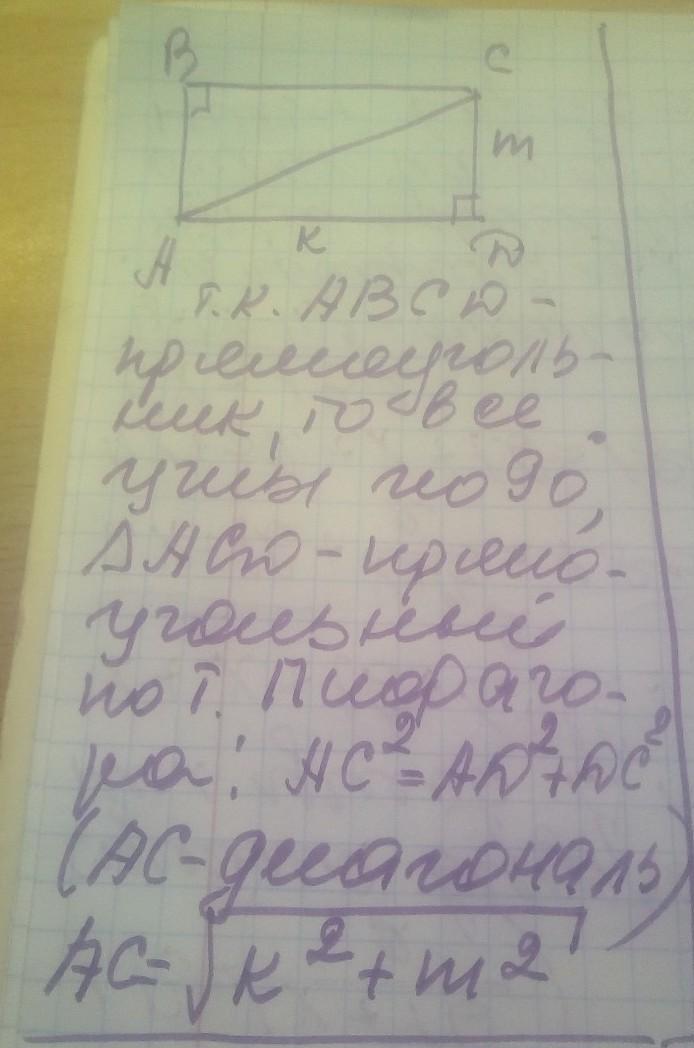 B C
m
A к D
т.к. ABCD -
прямоуголь-
ник, то все
углы по 90°,
ΔACD - прямо-
угольный
по т. Пифаго-
ра: AC²=AD²+DC²
(AC-диагональ)
AC=√к²+m²